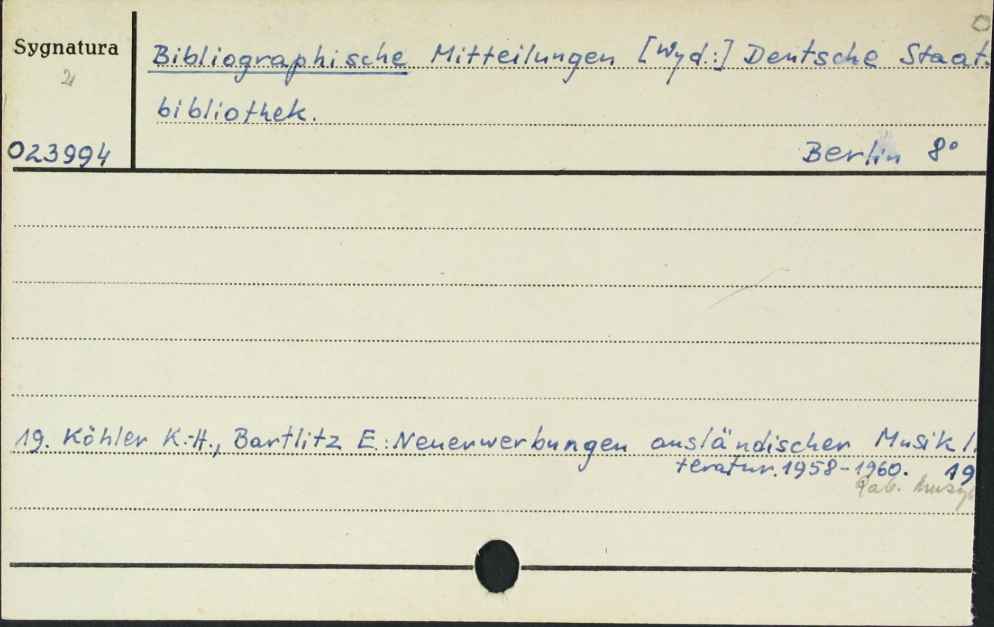 Sygnatura
Bibliographische Mitteilungen [Wyd.:] Deutsche Staat.
bibliothek.
023994
Berlin 8°
19. Köhler K.-H., Bartlitz E.: Neuerwerbungen ausländischer Musik l.
teratur. 1958-1960. 19